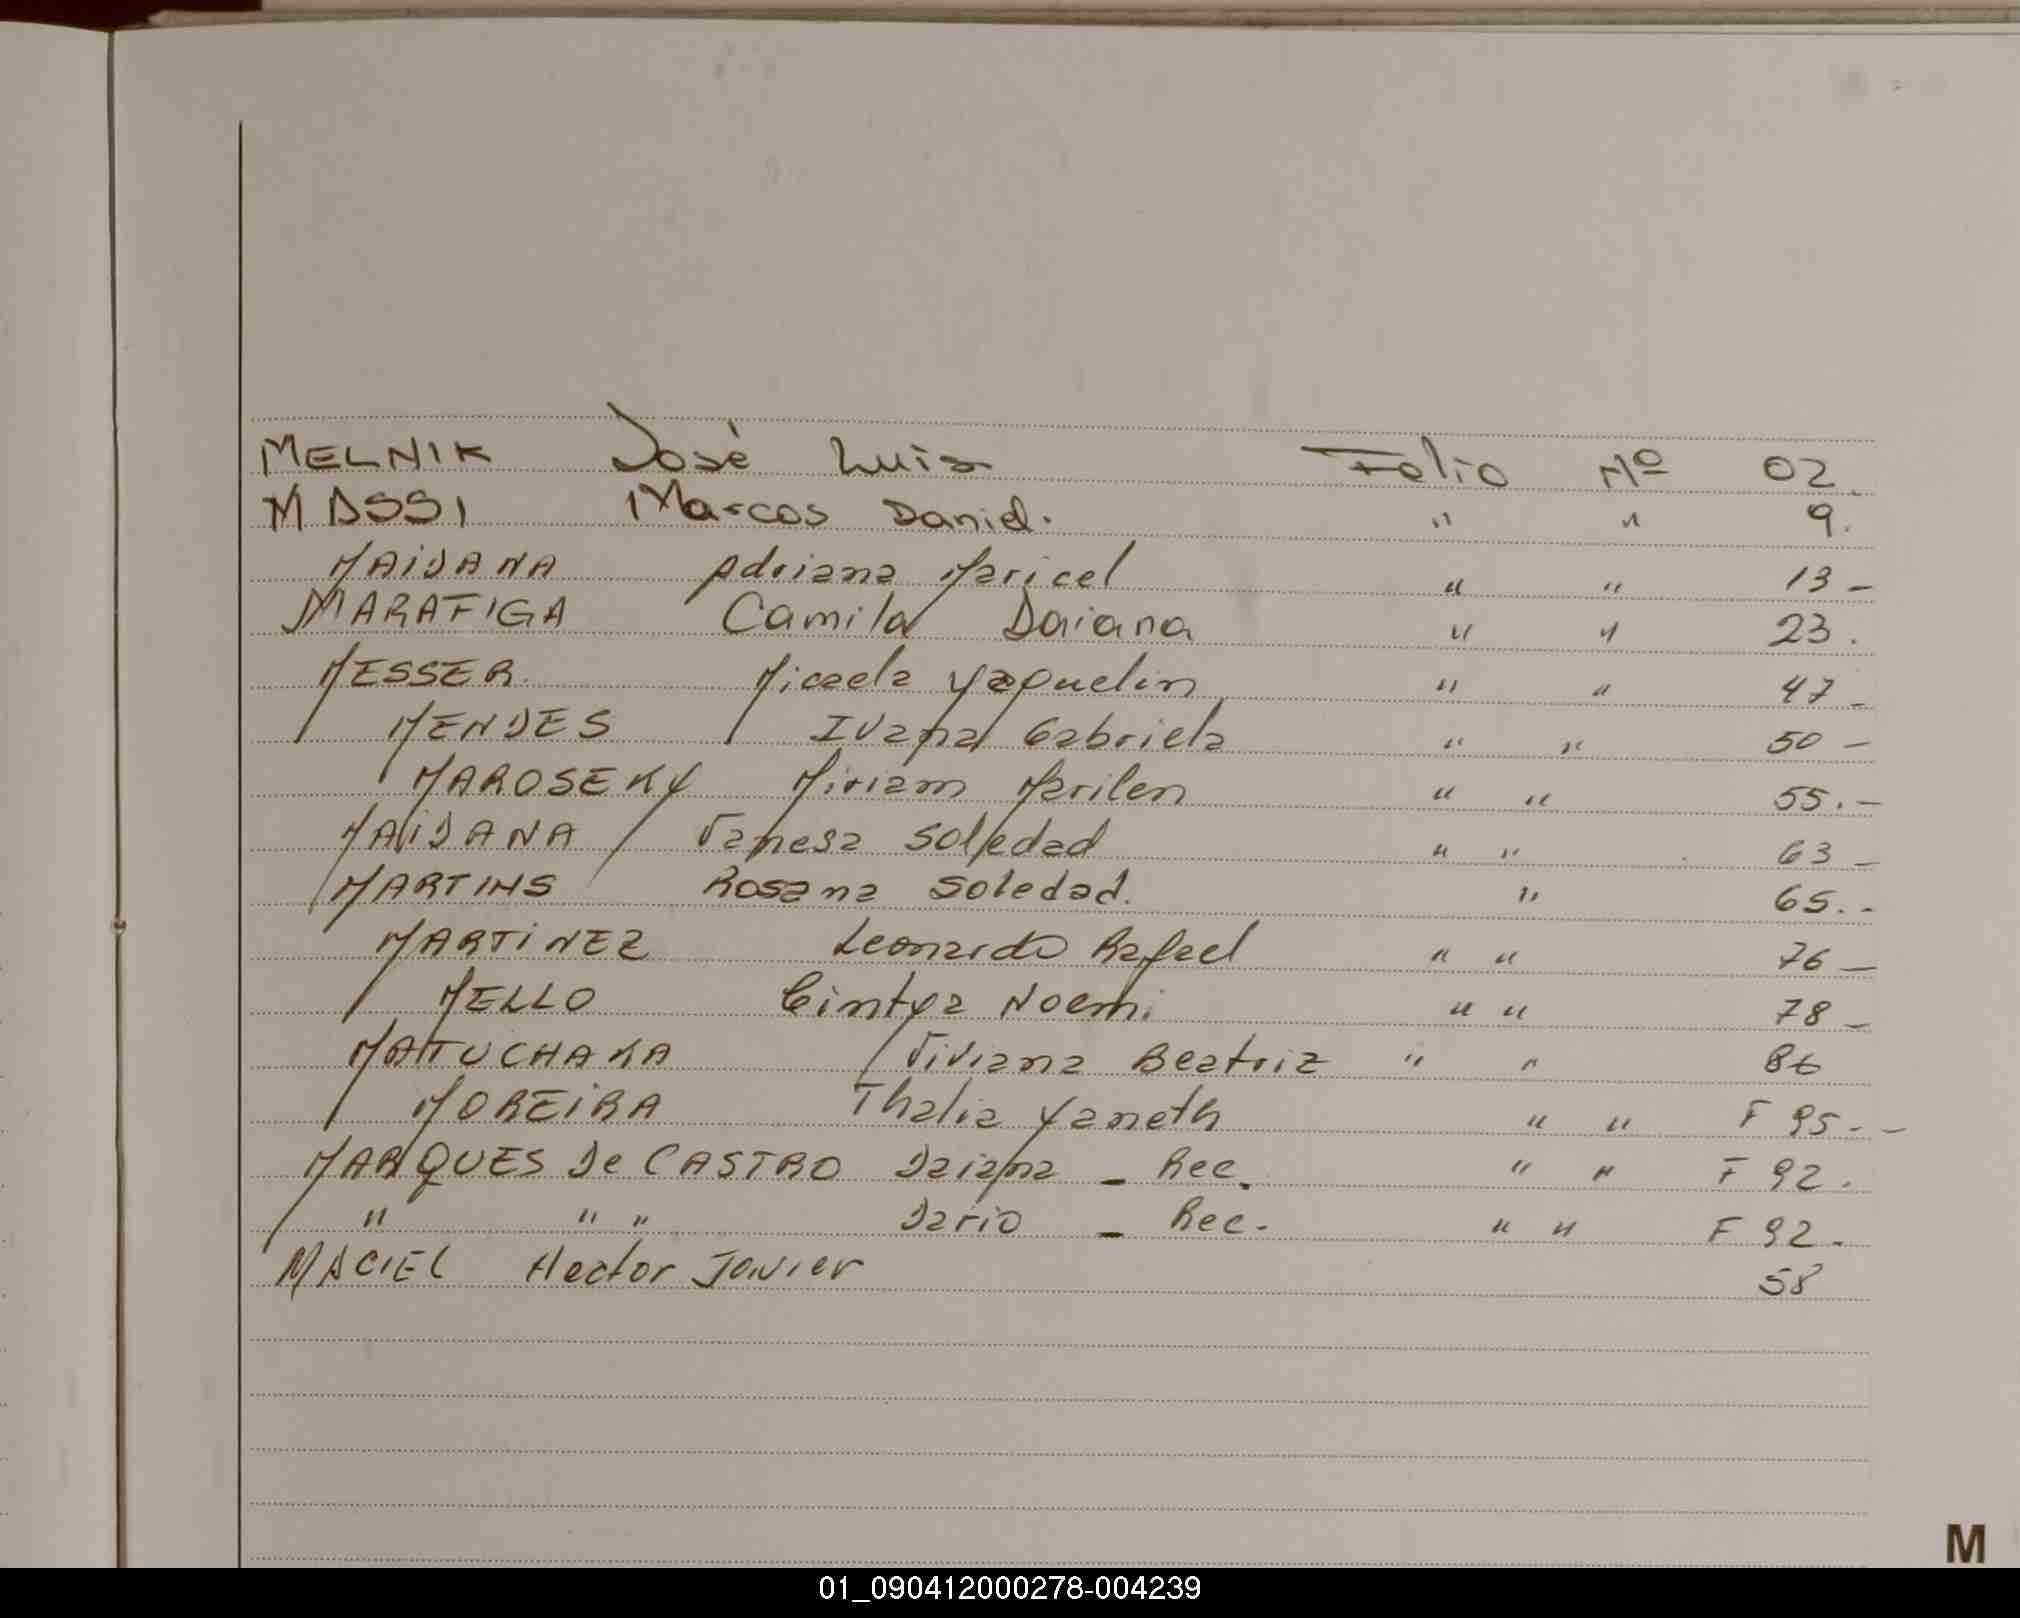 MELNIK José Luis Folio Nº 02.
MASSI Marcos Daniel. " " 9.
MAIDANA Adriana Maricel " " 13 -
MARAFIGA Camila Daiana " " 23.
MESSER Micaela Yaquelin " " 47 -
MENDES Ivana Gabriela " " 50 -
MAROSEKY Miriam Marilen " " 55.-
MAIDANA Vanesa Soledad " " 63 -
MARTINS Rosana Soledad. " 65.-
MARTINEZ Leonardo Rafael " " 76 -
MELLO Cintya Noemi " " 78 -
MATUCHAKA Viviana Beatriz " " 86
MOREIRA Thalia Yaneth " " F 95.--
MARQUES De CASTRO Daiana - Rec. " " F 92.
" " " Dario - Rec. " " F 92.
MACIEL Hector Javier 58
M
01_090412000278-004239